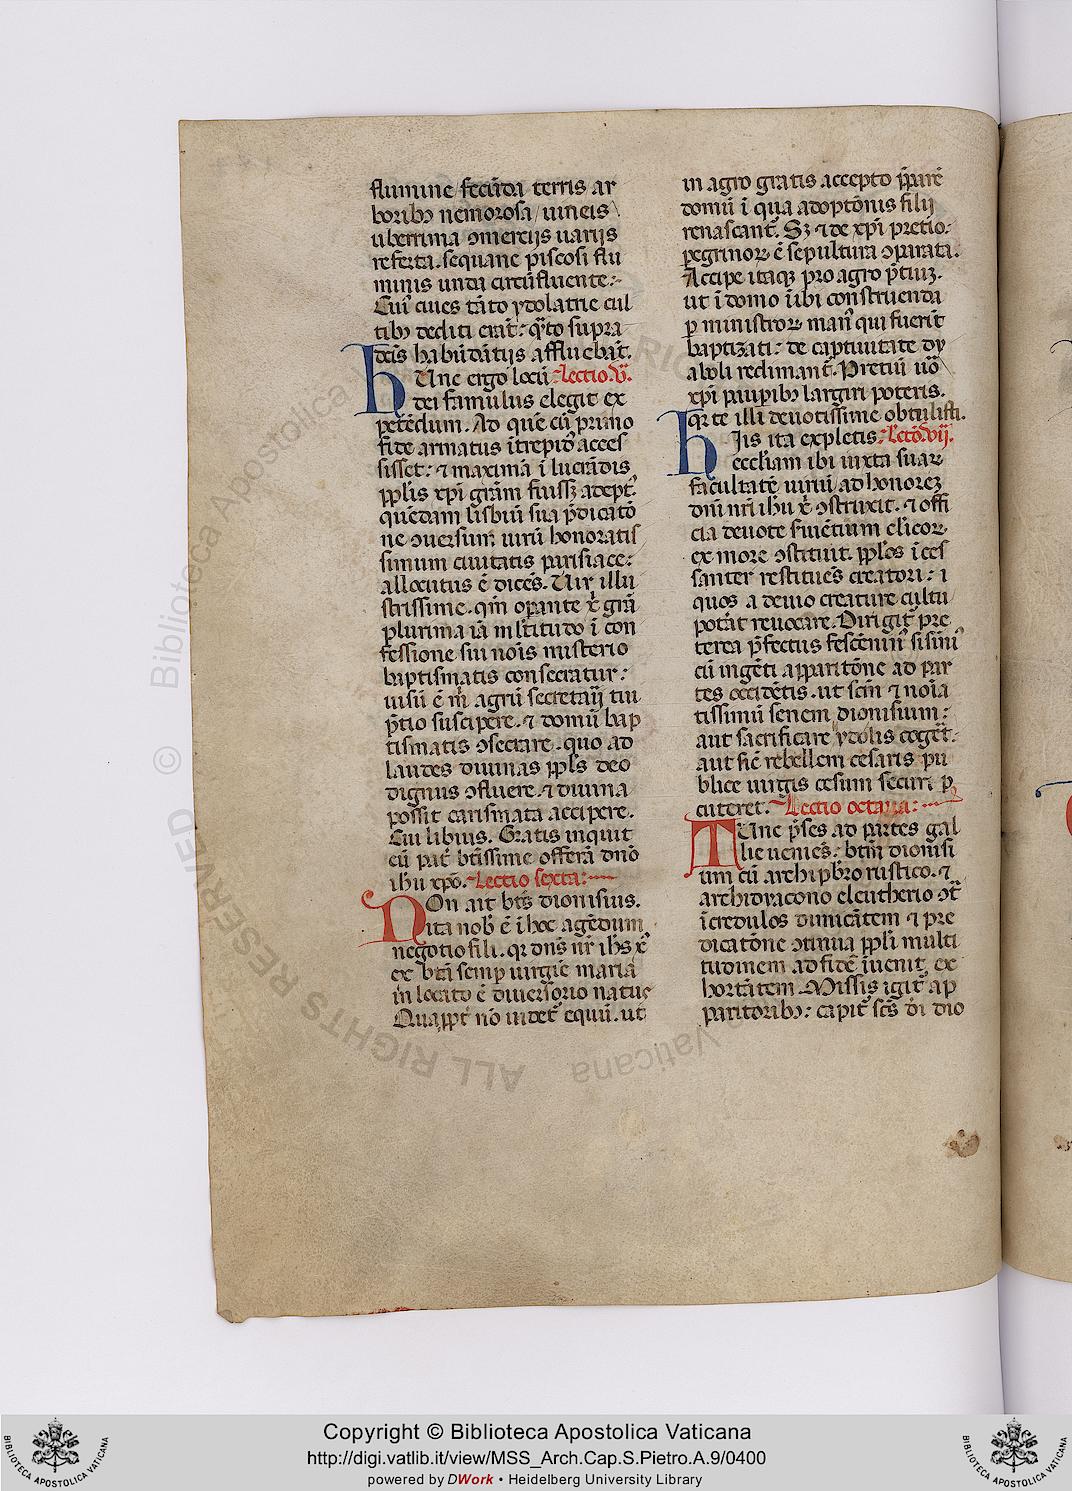 flumine fecūda terris ar
boribꝫ nemorosa / uineis
uberrima ↄmercijs uarijs
referta. sequane piscosi flu
minis unda circūfluente:
Cuiꝰ ciues tāto ydolatrie cul
tibꝫ dediti erāt: quāto supra
dcis habūdātijs affluebāt.
HUnc ergo locū Lectio .v.
dei famulus elegit ex
petēdum. Ad quē cū primo
fide armatus ītrepidꝰ acces
sisset: ⁊ maximā ī lucrādis
ppl̄is xp̄i grām fuisset adeptꝰ.
quēdam lisbiū sua p̄dicatō
ne ↄuersum uirū honoratis
simum ciuitatis parisiace:
allocutus ē dicēs. Uir illu
strissime. qm̄ operante xp̄i grā
plurima iā ml̄titudo ī con
fessione sui nois misterio
baptismatis consecratur:
uisū ē m̄ agrū secretarij tui
p̄tio suscipere. ⁊ domū bap
tismatis ↄsecrare. quo ad
laudes diuinas ppl̄s deo
dignus ↄfluere. ⁊ diuina
possit carismata accipere.
Cui libius. Gratis inquit
eū pat̄ btīssime offerā dn̄o
ihu xp̄o. Lectio sexta:
NOn ait bt̄s dionisius.
Nita nobꝰ ē ī hoc agēdum
negotio fili. qꝛ dn̄s nr̄ ihs xp̄c
ex bt̄a semp uirgīe maria
in locato ē diuersorio natus
Quapp̄t nō uidet̄ equū. ut
in agro gratis accepto p̄parē
domū ī qua adoptōnis filij
renascant̄. Sꝫ ⁊ de xp̄i pretio.
pegrinoꝝ ē sepultura ↄparata.
Accipe itaqꝫ pro agro p̄tiuꝫ.
ut ī domo ībi construenda
p ministroꝝ manꝰ qui fuerīt
baptizati: de captiuitate dy
aboli redimant̄. Pretiū uō
xp̄i paupibꝫ largiri poteris.
qꝛ te illi deuotissime obtulisti.
HIis ita expletis: Lectō .vij.
ecclīam ibi iuxta suaꝝ
facultatē uiriū ad honoreꝫ
dn̄i nr̄i ihu xp̄i ↄstruxit. ⁊ offi
cia deuote seruētium cl̄icoꝝ
ex more ↄstituit. ppl̄os īces
santer restituēs creatori: ī
quos a demo creature cultu
potāt reuocare. Dirigit̄ pre
terea p̄fectus fescēninꝰ sisiniꝰ
cū ingēti apparitōne ad par
tes occidētis. ut scm̄ ⁊ noīa
tissimū senem dionisium:
aut sacrificare ydolis coget̄:
aut sic̄ rebellem cesaris pu
blice uirgis cesum securi p
cuteret. Lectio octaua:
TUnc p̄ses ad partes gal
lie ueniēs: bt̄m dionisi
um cū archip̄bro rustico. ⁊
archidyacono eleutherio ↄt̄
īcredulos dimicātem ⁊ pre
dicatōne ↄtinua ppl̄i multi
tudinem ad fidē īuenit ex
hortātem. Missis igit̄ ap
paritoribꝫ: capit̄ scs̄ dī dio
Copyright © Biblioteca Apostolica Vaticana
http://digi.vatlib.it/view/MSS_Arch.Cap.S.Pietro.A.9/0400
powered by DWork • Heidelberg University Library